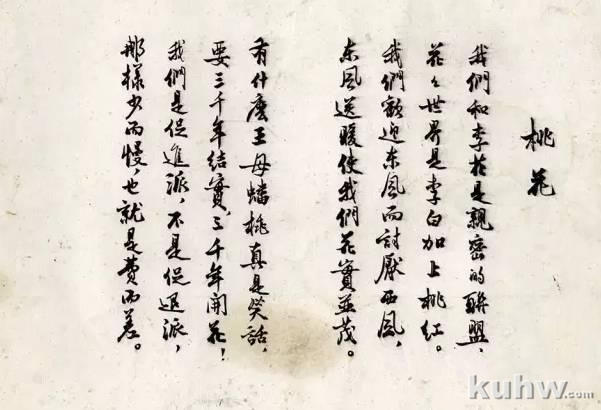 桃花
我們和李花是親密的聯盟、
花々世界是李白加上桃紅。
我們歡迎东風而討厭西風,
东風送暖使我們花實並茂。
有什麽王母蟠桃真是笑話,
要三千年结實,三千年開花!
我們是促進派,不是促退派,
那樣少而慢,也就是費而差。
kuhw.com